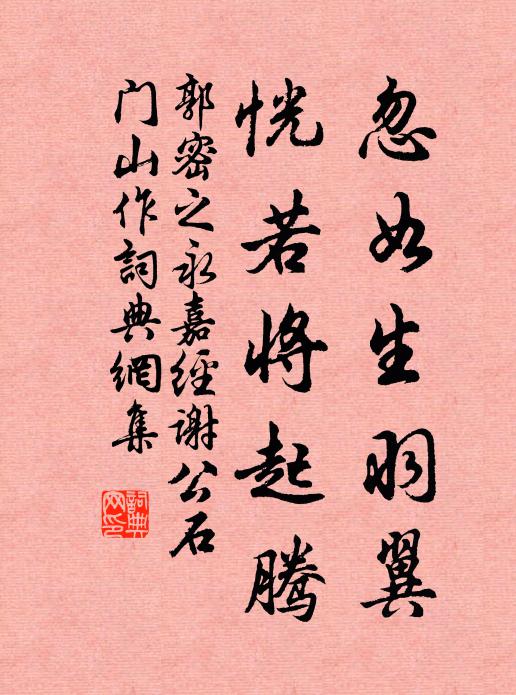 忽如生羽翼
恍若将起腾
郭密之永嘉经谢公石
门山作词典網集
詞典网印